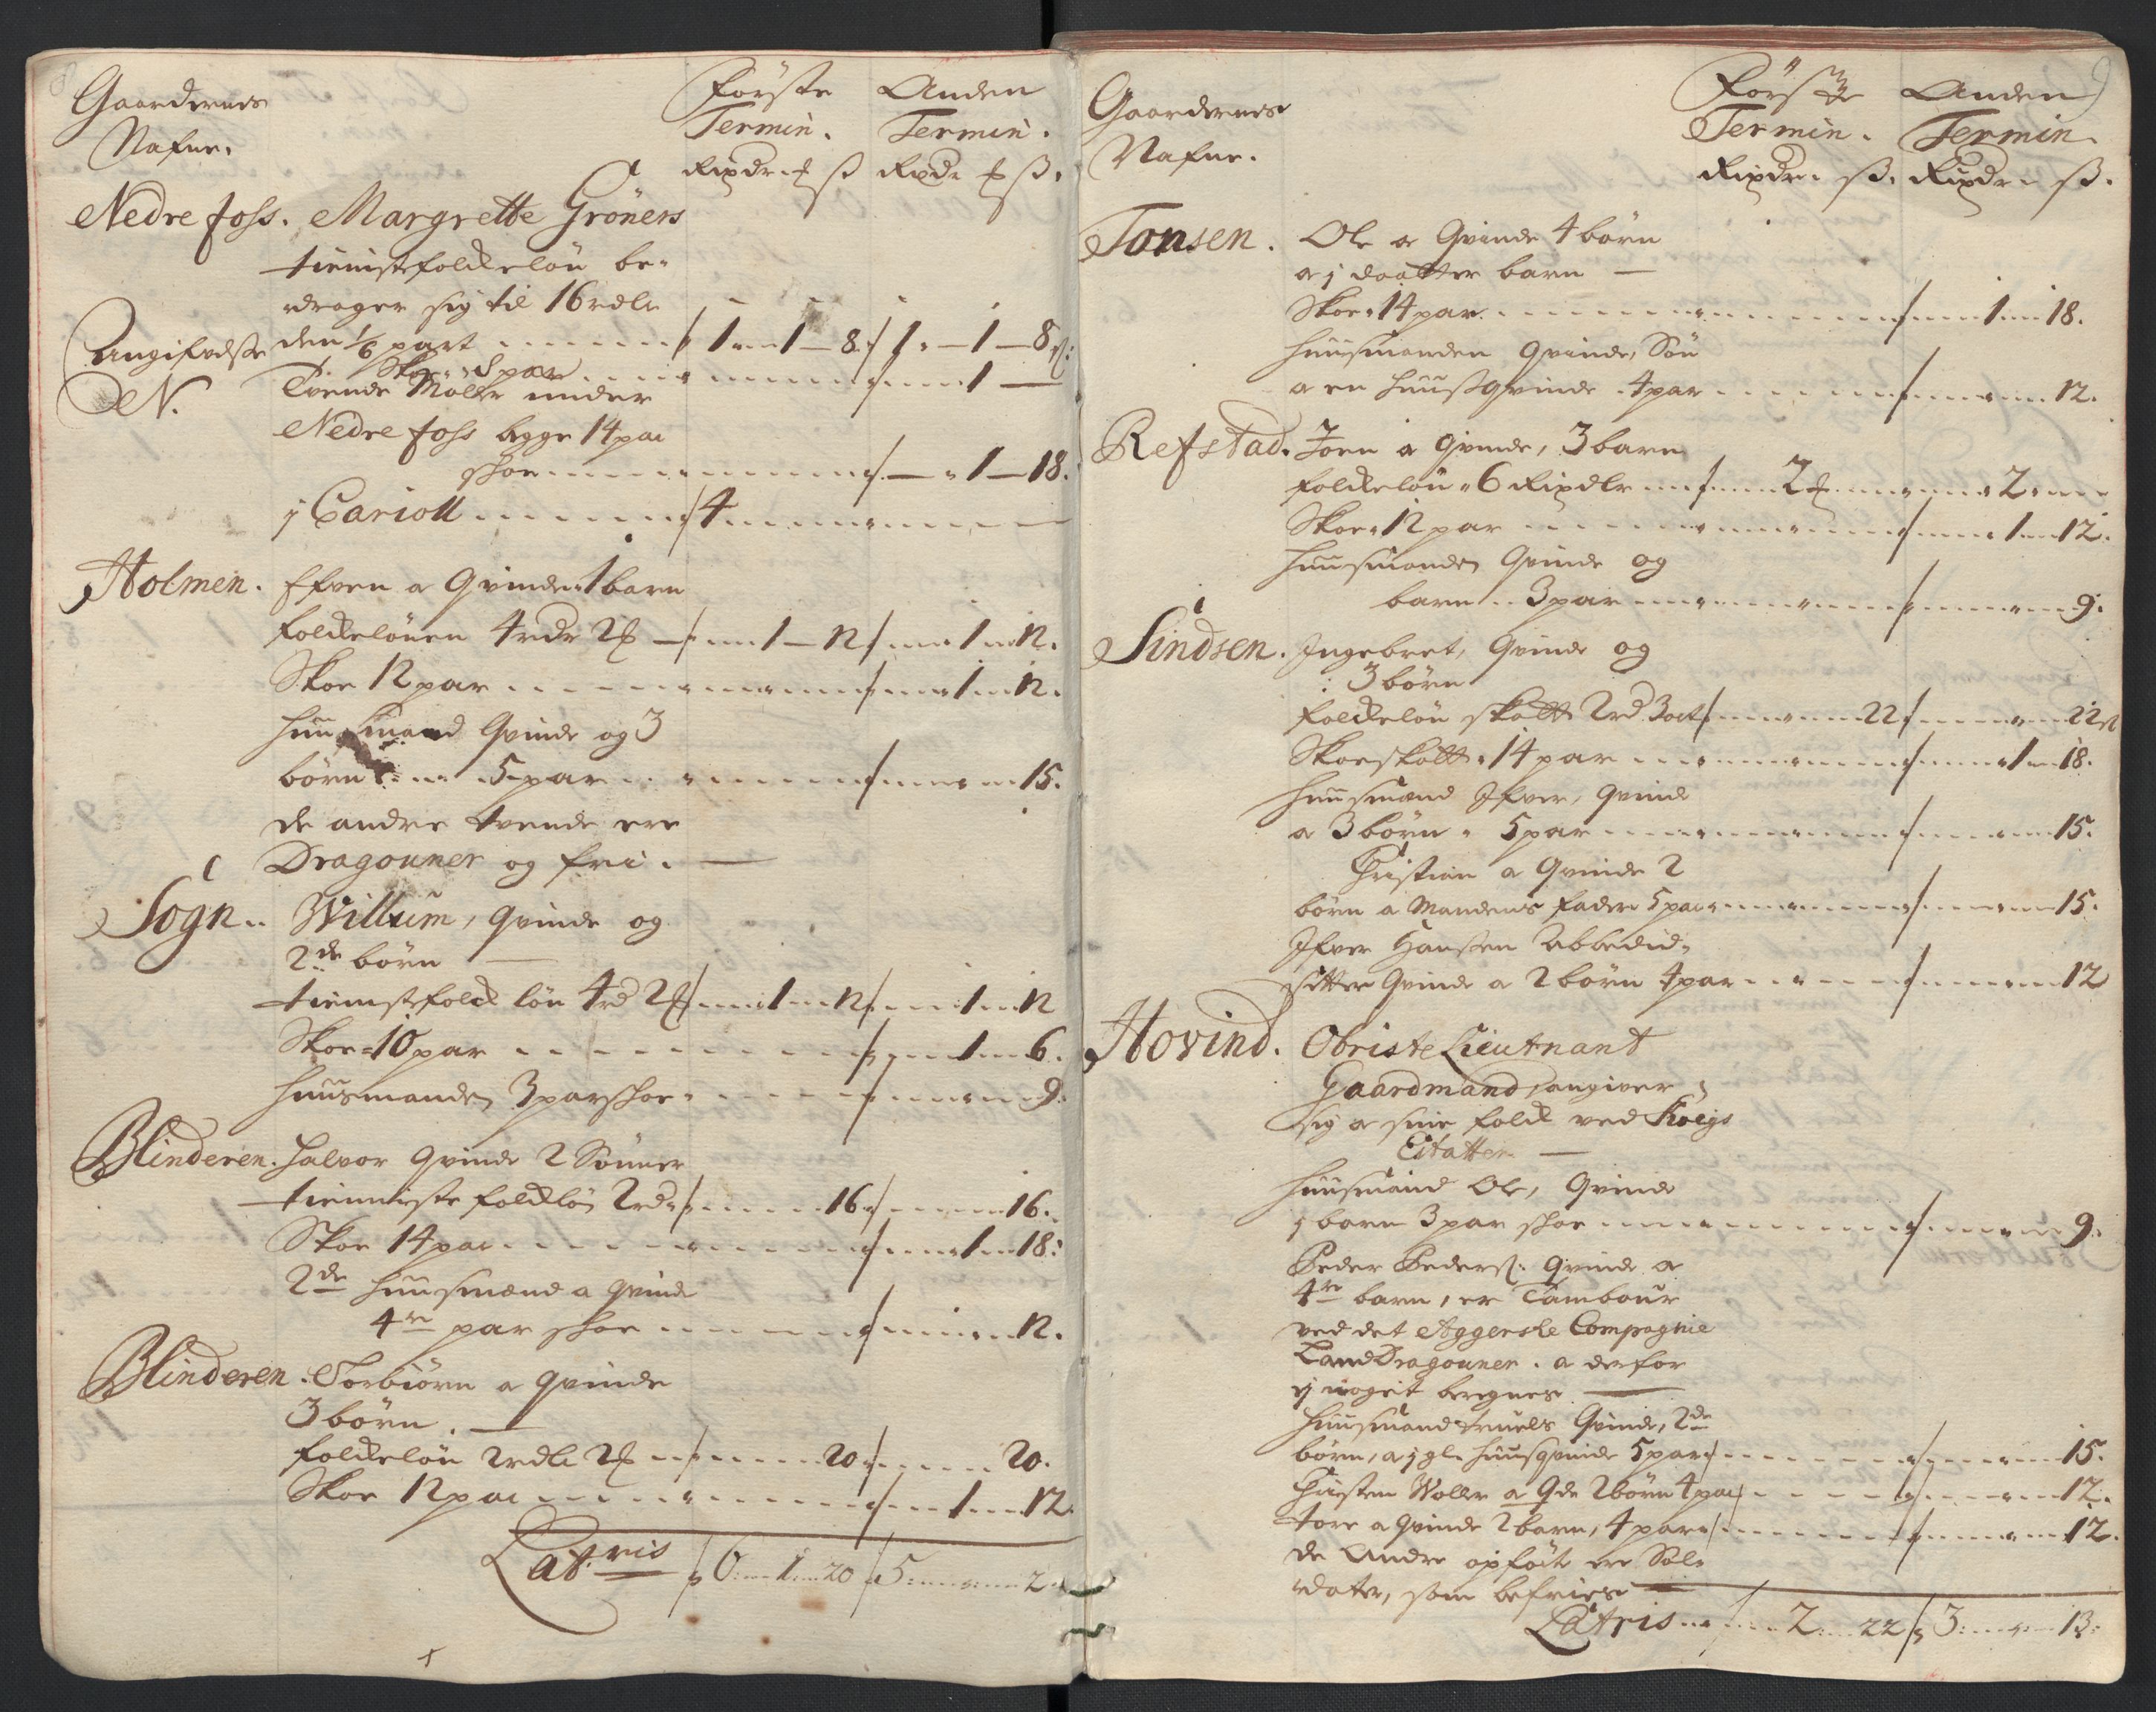 8
Gaardernes
Nafne.
Förste Termin.
Anden Termin.
Rixdr ß
Rixdr ß.
Nedre foss. Margrette Gröners
tienistefolckelön be-
drager sig til 16 rdlr
den 1/6 part 1 1 8 1 1 8 ß:
Angifvelse
N.
Skoe 8 par 1
Tvende Möller under
Nedre foss begge 14 par
skoe 1 18.
j Cariott 4
Holmen. Efven a Qvinde 1 barn
folckelönen 4 rdr 1 12 1 12.
Skoe 12 par 1 12.
huusmand Qvinde og 3
börn 5 par 15.
de andre tvende ere
Dragouner og fri.
Sogn. Willum, Qvinde og
2de börn
tienistefolck lön 4 rd 1 12 1 12
Skoe 10 par 1 6.
huusmanden 3 par skoe 9.
Blinderen. Halvor Qvinde 2 Sönner
tienniste folcklön 2 rd 16 16.
Skoe 14 par 1 18.
2de huusmænd a Qvinde
4re par skoe 12.
Blinderen. Torbiörn a Qvinde
3 börn.
folckelön 2 rdlr 20 20.
Skoe 12 par 1 12.
Latris 6 1 20 5 2
9
Gaardernes
Nafne.
Förste Termin.
Anden Termin.
Rixdr ß.
Rixdr ß.
Tonsen. Ole a Qvinde 4 börn
a j daatter barn
Skoe 14 par 1 18.
huusmanden Qvinde, Sön
a en huusqvinde 4 par 12.
Refstad. Joen a Qvinde, 3 barn
folckelön 6 Rixdlr 2 2
Skoe 12 par 1 12.
huusmanden Qvinde og
barn 3 par 9.
Sindsen. Ingebret, Qvinde og
3 börn
folckelön skott 2 rd 3 ort 22 22 ß
Skoe skott 14 par 1 18.
huusmand Ifver, Qvinde
a 3 börn 5 par 15.
Christian a Qvinde 2
börn a Mandens fader 5 par 15.
Ifver Hansen
sitter Qvinde a 2 börn 4 par 12
Hovind. Obriste Lieutnant
Gaardmand, angiver
sig a sine folck ved
Etatten
huusmand Ole, Qvinde
j barn 3 par skoe 9.
Peder Peders: Qvinde a
4re barn, er Tambour
ved det Aggerske Compagnie
Land Dragouner. a derfor
ej noget beregnes
huusmand Truels Qvinde, 2de
börn, a j gl. huusqvinde 5 par 15.
Christen Woller a Qde 2 börn 4 par 12.
Tore a Qvinde 2 barn, 4 par 12.
de Andre opförte ere Sol-
dater, som befries
Latris 2 22 3 13.